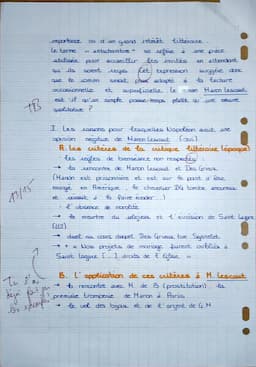 importance ou d'un grand intérêt littéraire.
Le terme « antichambre » se réfère à une pièce
utilisée pour accueillir des invités en attendant
qu'ils soient reçus. Cet expression suggère donc
que le roman serait plus adapté à la lecture
occasionnelle et superficielle. Le roman Manon Lescaut
est-il qu'un simple passe-temps plutôt qu'une oeuvre
qualitative ?
TB
I. Les raisons pour lesquelles Napoléon avait une
opinion négative de Manon Lescaut (avis)
A. les critères de la critique littéraire (époque)
les règles de bienséance non respectées :
→ la rencontre de Manon Lescaut et Des Grieux
(Manon est prisonnière et est sur le point d'être
envoyé en Amérique, le chevalier DG tombe amoureux
et
à la faire évader...)
13/15
→ l'absence de moralité
→ le meurtre du
et l'évasion de Saint Lazare
→ duel au cours duquel Des Grieux tue Synnelet
→ « Nos projets de mariage furent oubliés à
Saint Denis [...] droits de l'Eglise »
Tu
déjà
les exemples
B. L'application de ces critères à M. Lescaut
→ la rencontre avec M. de B (prostitution) : la
première tromperie de Manon à Paris
→ le vol des bijoux et de l'argent de G.M